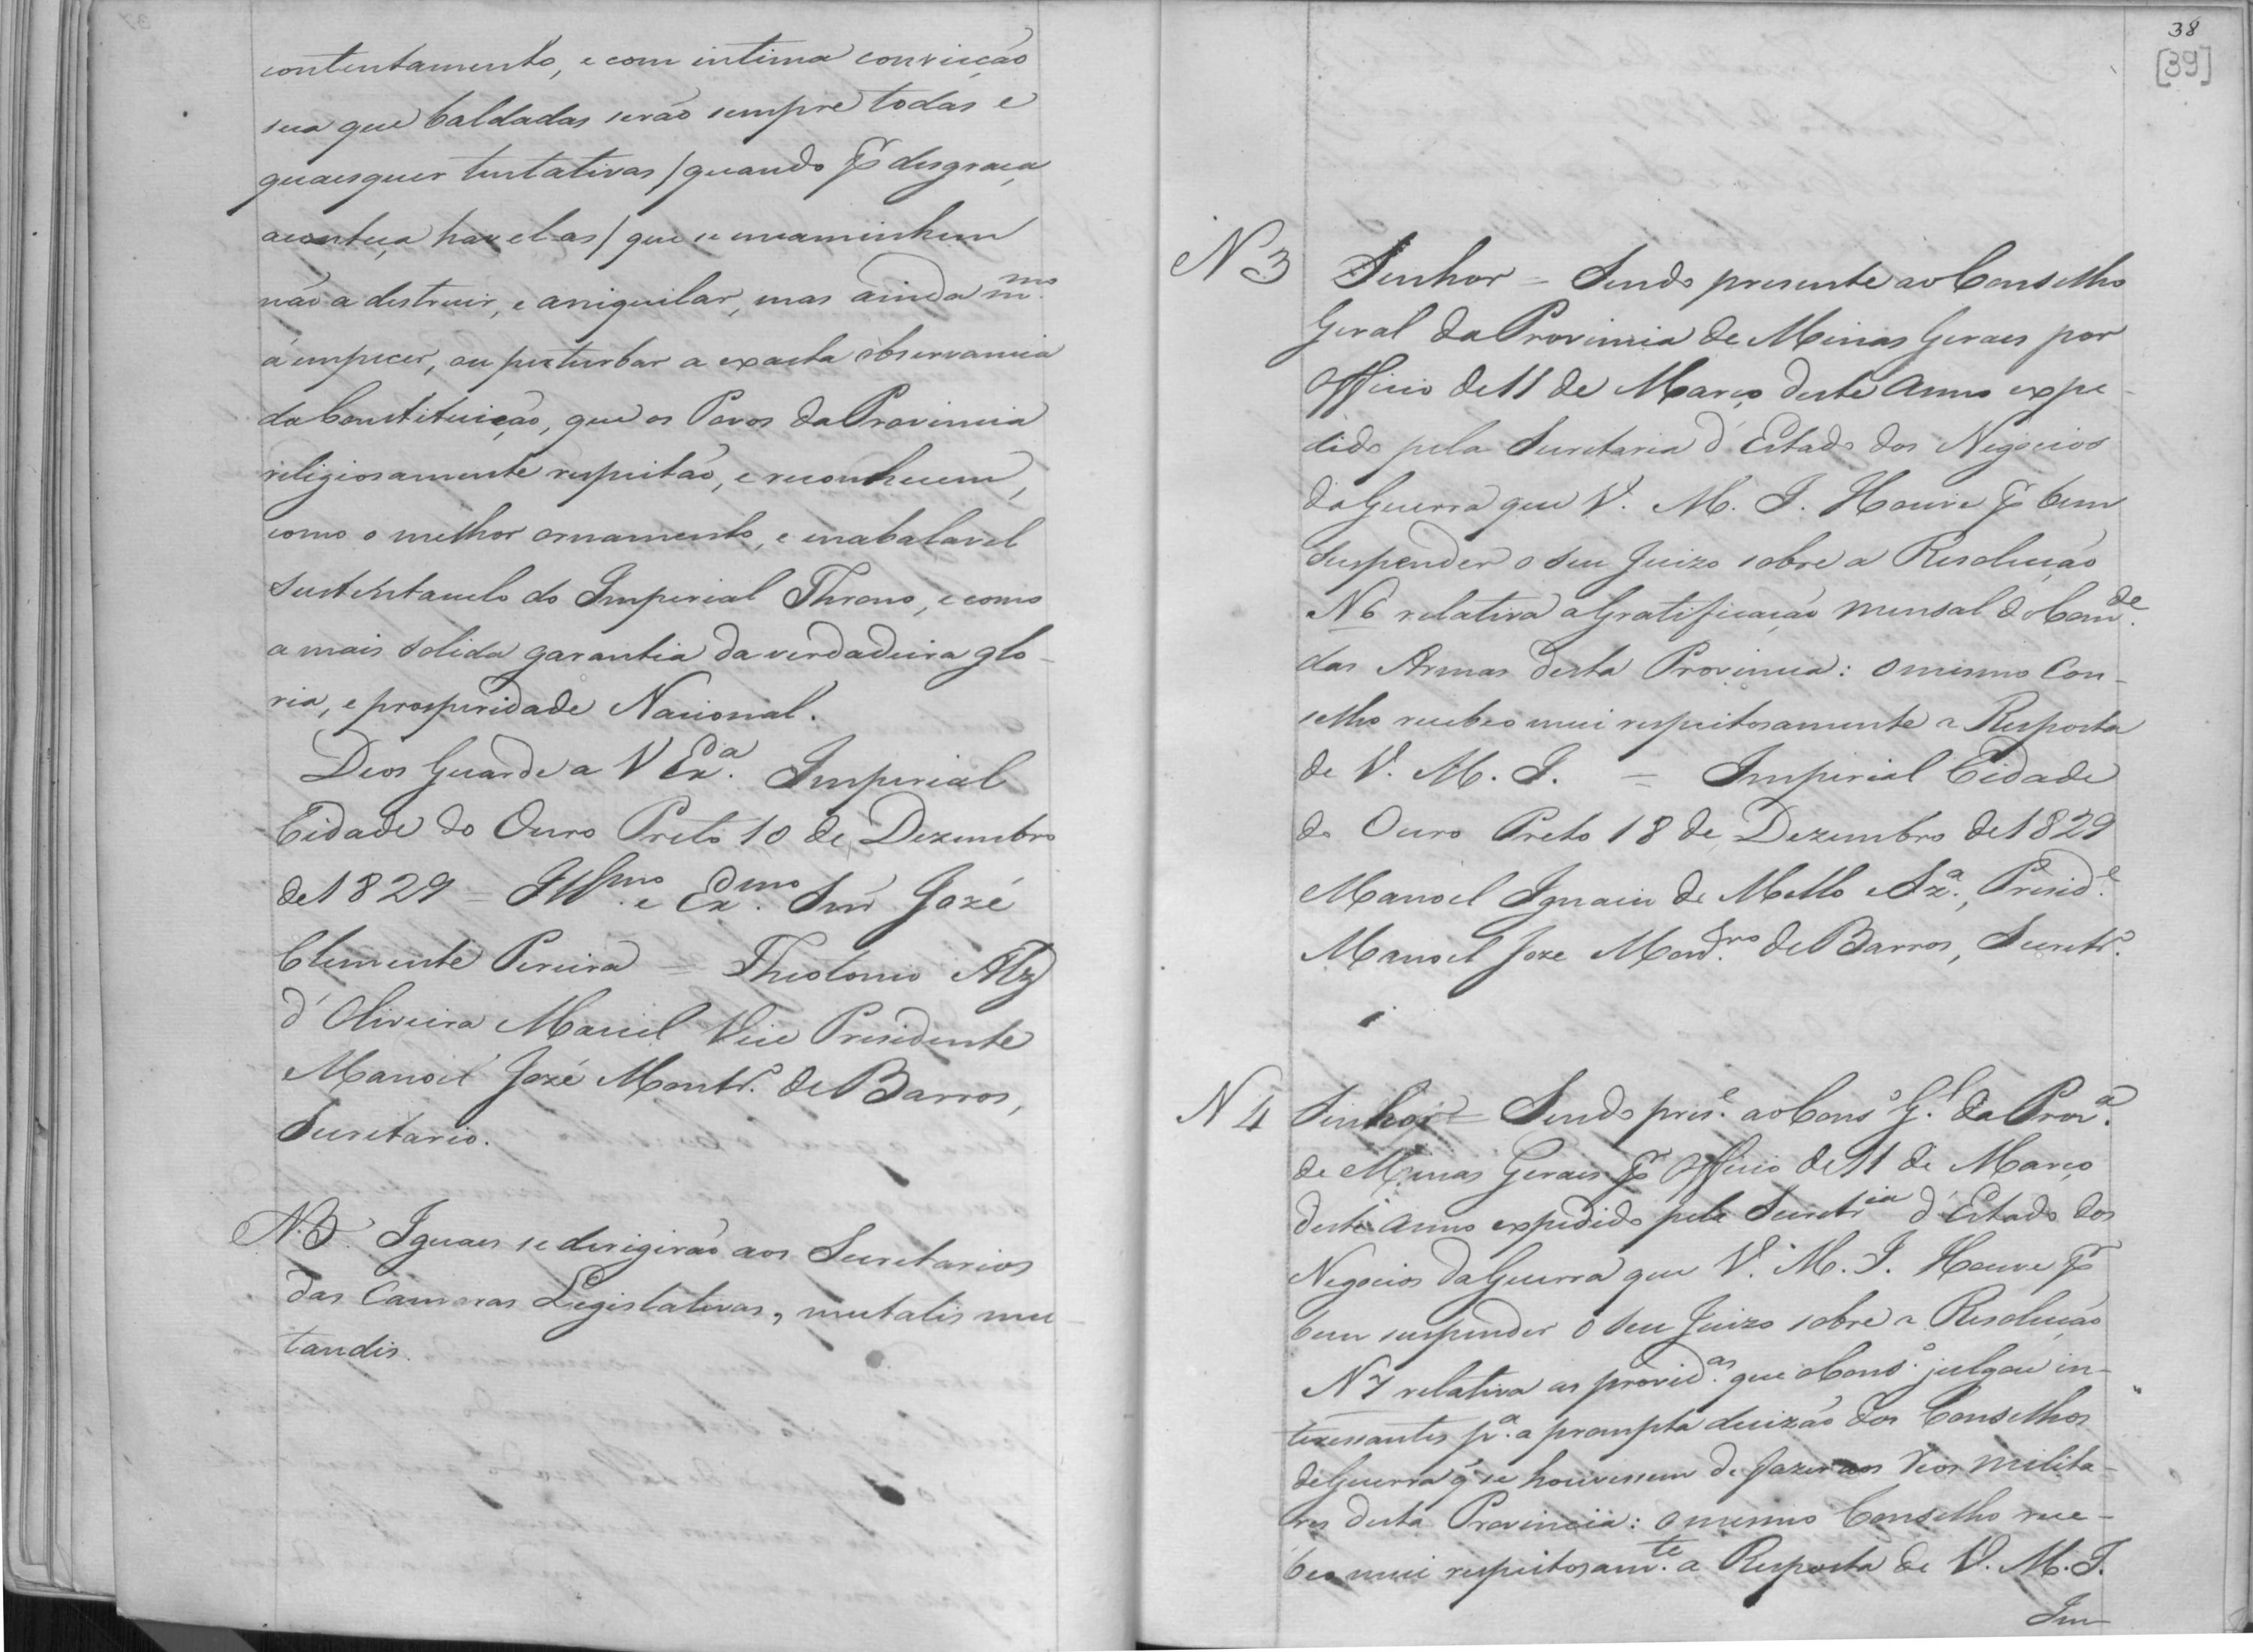 contentamento, e com intima convicção
sua que baldadas serão sempre todas e
quaesquer tentativas / quando pr desgraça
aconteça havelas / que se encaminhem
não a destruir, e aniquilar, mas ainda mmo
a empecer, ou perturbar a exacta observancia
da Constituição, que os Povos da Provincia
religiosamente respeitão, e reconhecem,
como o melhor ornamento, e inabalavel
sustentaculo do Imperial Throno, e como
a mais solida garantia da verdadeira glo-
ria, e prosperidade Nacional.
Deos Guarde a V Exa. Imperial
Cidade do Ouro Preto 10 de Dezembro
de 1829 = Illmo. e Exmo. Snr José
Clemente Pereira = Theotonio Alz
d'Oliveira Maciel Vice Presidente
Manoel José Montro. de Barros,
Secretario.
N.B. Iguaes se dirigirão aos Secretarios
das Camaras Legislativas, mutatis mu-
tandis.
38
[39]
N 3 Senhor = Sendo presente ao Conselho
Geral da Provincia de Minas Geraes por
Officio de 11 de Março deste Anno expe-
dido pela Secretaria d'Estado dos Negocios
da Guerra que V. M. I. Houve pr bem
suspender o seu Juizo sobre a Resolução
N 6 relativa a Gratificação mensal do Comde.
das Armas desta Provincia: o mesmo Con-
selho recebeo mui respeitosamente a Resposta
de V. M. I. = Imperial Cidade
do Ouro Preto 18 de Dezembro de 1829
Manoel Ignacio de Mello e Sza., Preside.
Manoel Joze Montro. de Barros, Secretro.
N 4 Senhor = Sendo prese. ao Conso Gl. da Prova.
de Minas Geraes pr Officio de 11 de Março
deste anno expedido pela Secretria d'Estado dos
Negocios da Guerra que V. M. I. Houve pr
bem suspender o seu Juizo sobre a Resolução
N 7 relativa as providas. que o Conso. julgou in-
teressantes pa. a prompta decizão dos Conselhos
de Guerra q' se houvessem de fazer aos Reos milita-
res desta Provincia: o mesmo Conselho rece-
beo mui respeitosamte. a Resposta de V. M. I.
Im-